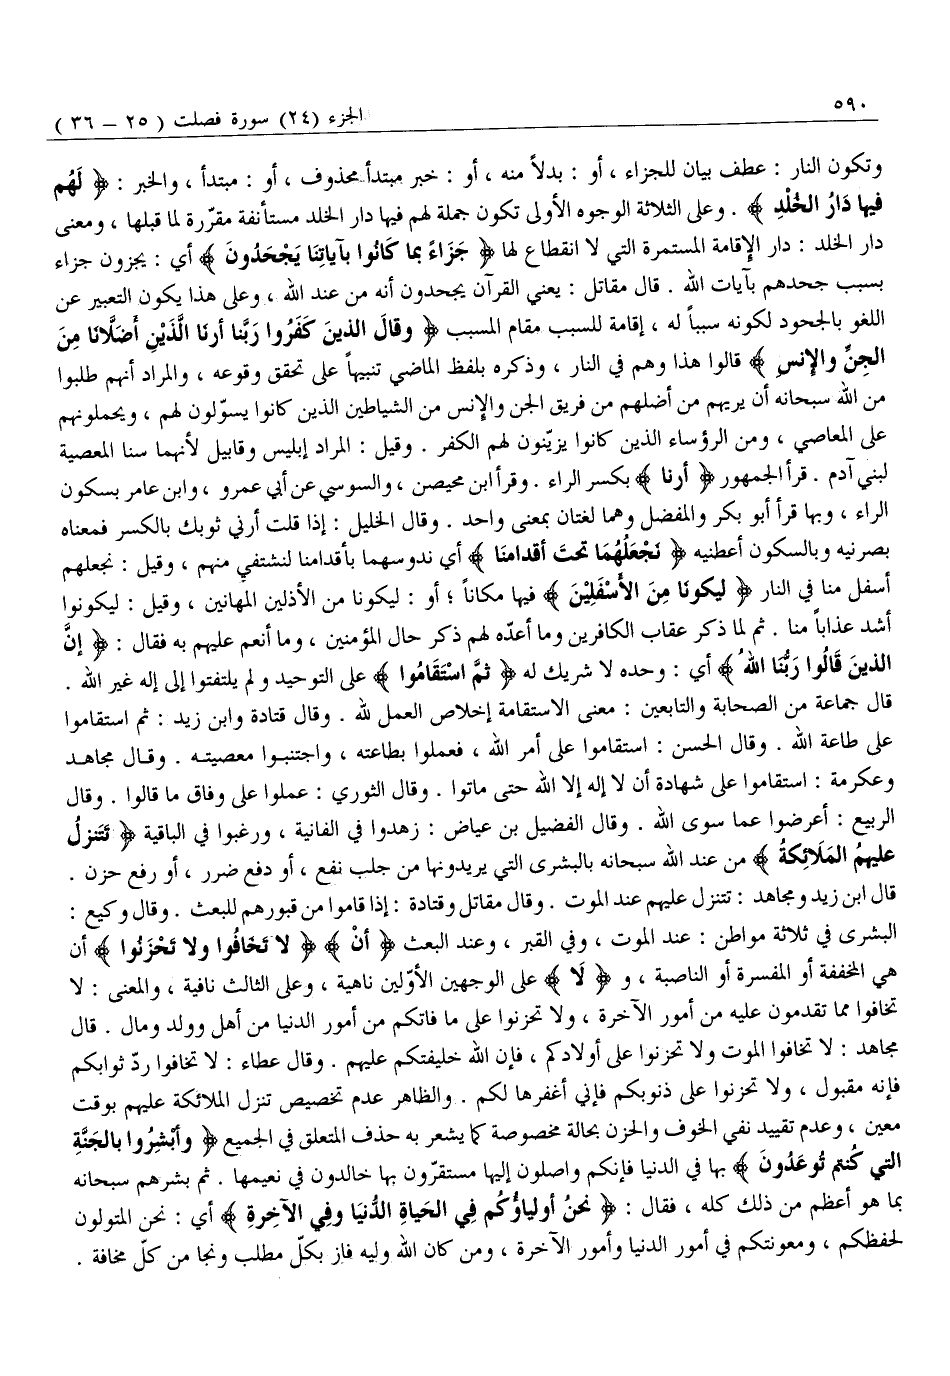 ٥٩٠
الجزء (٢٤) سورة فصلت ( ٢٥ – ٣٦ )
وتكون النار : عطف بيان للجزاء ، أو : بدلاً منه ، أو : خبر مبتدأ محذوف ، أو : مبتدأ ، والخبر : ﴿ لَهُم
فيها دَارُ الخُلْدِ ﴾ . وعلى الثلاثة الوجوه الأولى تكون جملة لهم فيها دار الخلد مستأنفة مقرّرة لما قبلها ، ومعنى
دار الخلد : دار الإقامة المستمرة التي لا انقطاع لها ﴿ جَزَاءً بما كَانُوا بآياتِنَا يَجْحَدُونَ ﴾ أي : يجزون جزاء
بسبب جحدهم بآيات الله . قال مقاتل : يعني القرآن يجحدون أنه من عند الله ، وعلى هذا يكون التعبير عن
اللغو بالجحود لكونه سبباً له ، إقامة للسبب مقام المسبب ﴿ وقالَ الذينَ كَفَرُوا رَبَّنا أرنَا الَّذَيْنِ أضَلَّانَا مِنَ
الجِنِّ والإنسِ ﴾ قالوا هذا وهم في النار ، وذكره بلفظ الماضي تنبيهاً على تحقق وقوعه ، والمراد أنهم طلبوا
من الله سبحانه أن يريهم من أضلهم من فريق الجن والإنس من الشياطين الذين كانوا يسوّلون لهم ، ويحملونهم
على المعاصي ، ومن الرؤساء الذين كانوا يزيّنون لهم الكفر . وقيل : المراد إبليس وقابيل لأنهما سنا المعصية
لبني آدم . قرأ الجمهور ﴿ أرِنا ﴾ بكسر الراء . وقرأ ابن محيصن ، والسوسي عن أبي عمرو ، وابن عامر بسكون
الراء ، وبها قرأ أبو بكر والمفضل وهما لغتان بمعنى واحد . وقال الخليل : إذا قلت أرني ثوبك بالكسر فمعناه
بصرنيه وبالسكون أعطنيه ﴿ نَجْعَلْهُمَا تحتَ أقدامنَا ﴾ أي ندوسهما بأقدامنا لنشتفي منهم ، وقيل : نجعلهم
أسفل منا في النار ﴿ ليكونَا مِنَ الأَسْفَلِيْنَ ﴾ فيها مكاناً ؛ أو : ليكونا من الأذلين المهانين ، وقيل : ليكونوا
أشد عذاباً منا . ثم لما ذكر عقاب الكافرين وما أعدّه لهم ذكر حال المؤمنين ، وما أنعم عليهم به فقال : ﴿ إنَّ
الذينَ قَالُوا رَبُّنَا اللهُ ﴾ أي : وحده لا شريك له ﴿ ثمَّ اسْتَقَامُوا ﴾ على التوحيد و لم يلتفتوا إلى إله غير الله .
قال جماعة من الصحابة والتابعين : معنى الاستقامة إخلاص العمل لله . وقال قتادة وابن زيد : ثم استقاموا
على طاعة الله . وقال الحسن : استقاموا على أمر الله ، فعملوا بطاعته ، واجتنبوا معصيته . وقال مجاهد
وعكرمة : استقاموا على شهادة أن لا إله إلا الله حتى ماتوا . وقال الثوري : عملوا على وفاق ما قالوا . وقال
الربيع : أعرضوا عما سوى الله . وقال الفضيل بن عياض : زهدوا في الفانية ، ورغبوا في الباقية ﴿ تَتَنزلُ
عليهمُ المَلَائِكَةُ ﴾ من عند الله سبحانه بالبشرى التي يريدونها من جلب نفع ، أو دفع ضرر ، أو رفع حزن .
قال ابن زيد ومجاهد : تتنزل عليهم عند الموت . وقال مقاتل وقتادة : إذا قاموا من قبورهم للبعث . وقال وكيع :
البشرى في ثلاثة مواطن : عند الموت ، وفي القبر ، وعند البعث ﴿ أنْ ﴾ ﴿ لا تَخَافُوا ولا تَحْزَنُوا ﴾ أن
هي المخففة أو المفسرة أو الناصبة ، و ﴿ لَا ﴾ على الوجهين الأوّلين ناهية ، وعلى الثالث نافية ، والمعنى : لا
تخافوا مما تقدمون عليه من أمور الآخرة ، ولا تحزنوا على ما فاتكم من أمور الدنيا من أهل وولد ومال . قال
مجاهد : لا تخافوا الموت ولا تحزنوا على أولادكم ، فإن الله خليفتكم عليهم . وقال عطاء : لا تخافوا ردّ ثوابكم
فإنه مقبول ، ولا تحزنوا على ذنوبكم فإني أغفرها لكم . والظاهر عدم تخصيص تنزل الملائكة عليهم بوقت
معين ، وعدم تقييد نفي الخوف والحزن بحالة مخصوصة كما يشعر به حذف المتعلق في الجميع ﴿ وأبْشِرُوا بالجَنَّةِ
التي كُنتم تُوعَدُونَ ﴾ بها في الدنيا فإنكم واصلون إليها مستقرّون بها خالدون في نعيمها . ثم بشرهم سبحانه
بما هو أعظم من ذلك كله ، فقال : ﴿ نحنُ أولياؤُكُم فِي الحَياةِ الدُّنيَا وفِي الآخِرةِ ﴾ أي : نحن المتولون
لحفظكم ، ومعونتكم في أمور الدنيا وأمور الآخرة ، ومن كان الله وليه فاز بكلّ مطلب ونجا من كلّ مخافة .